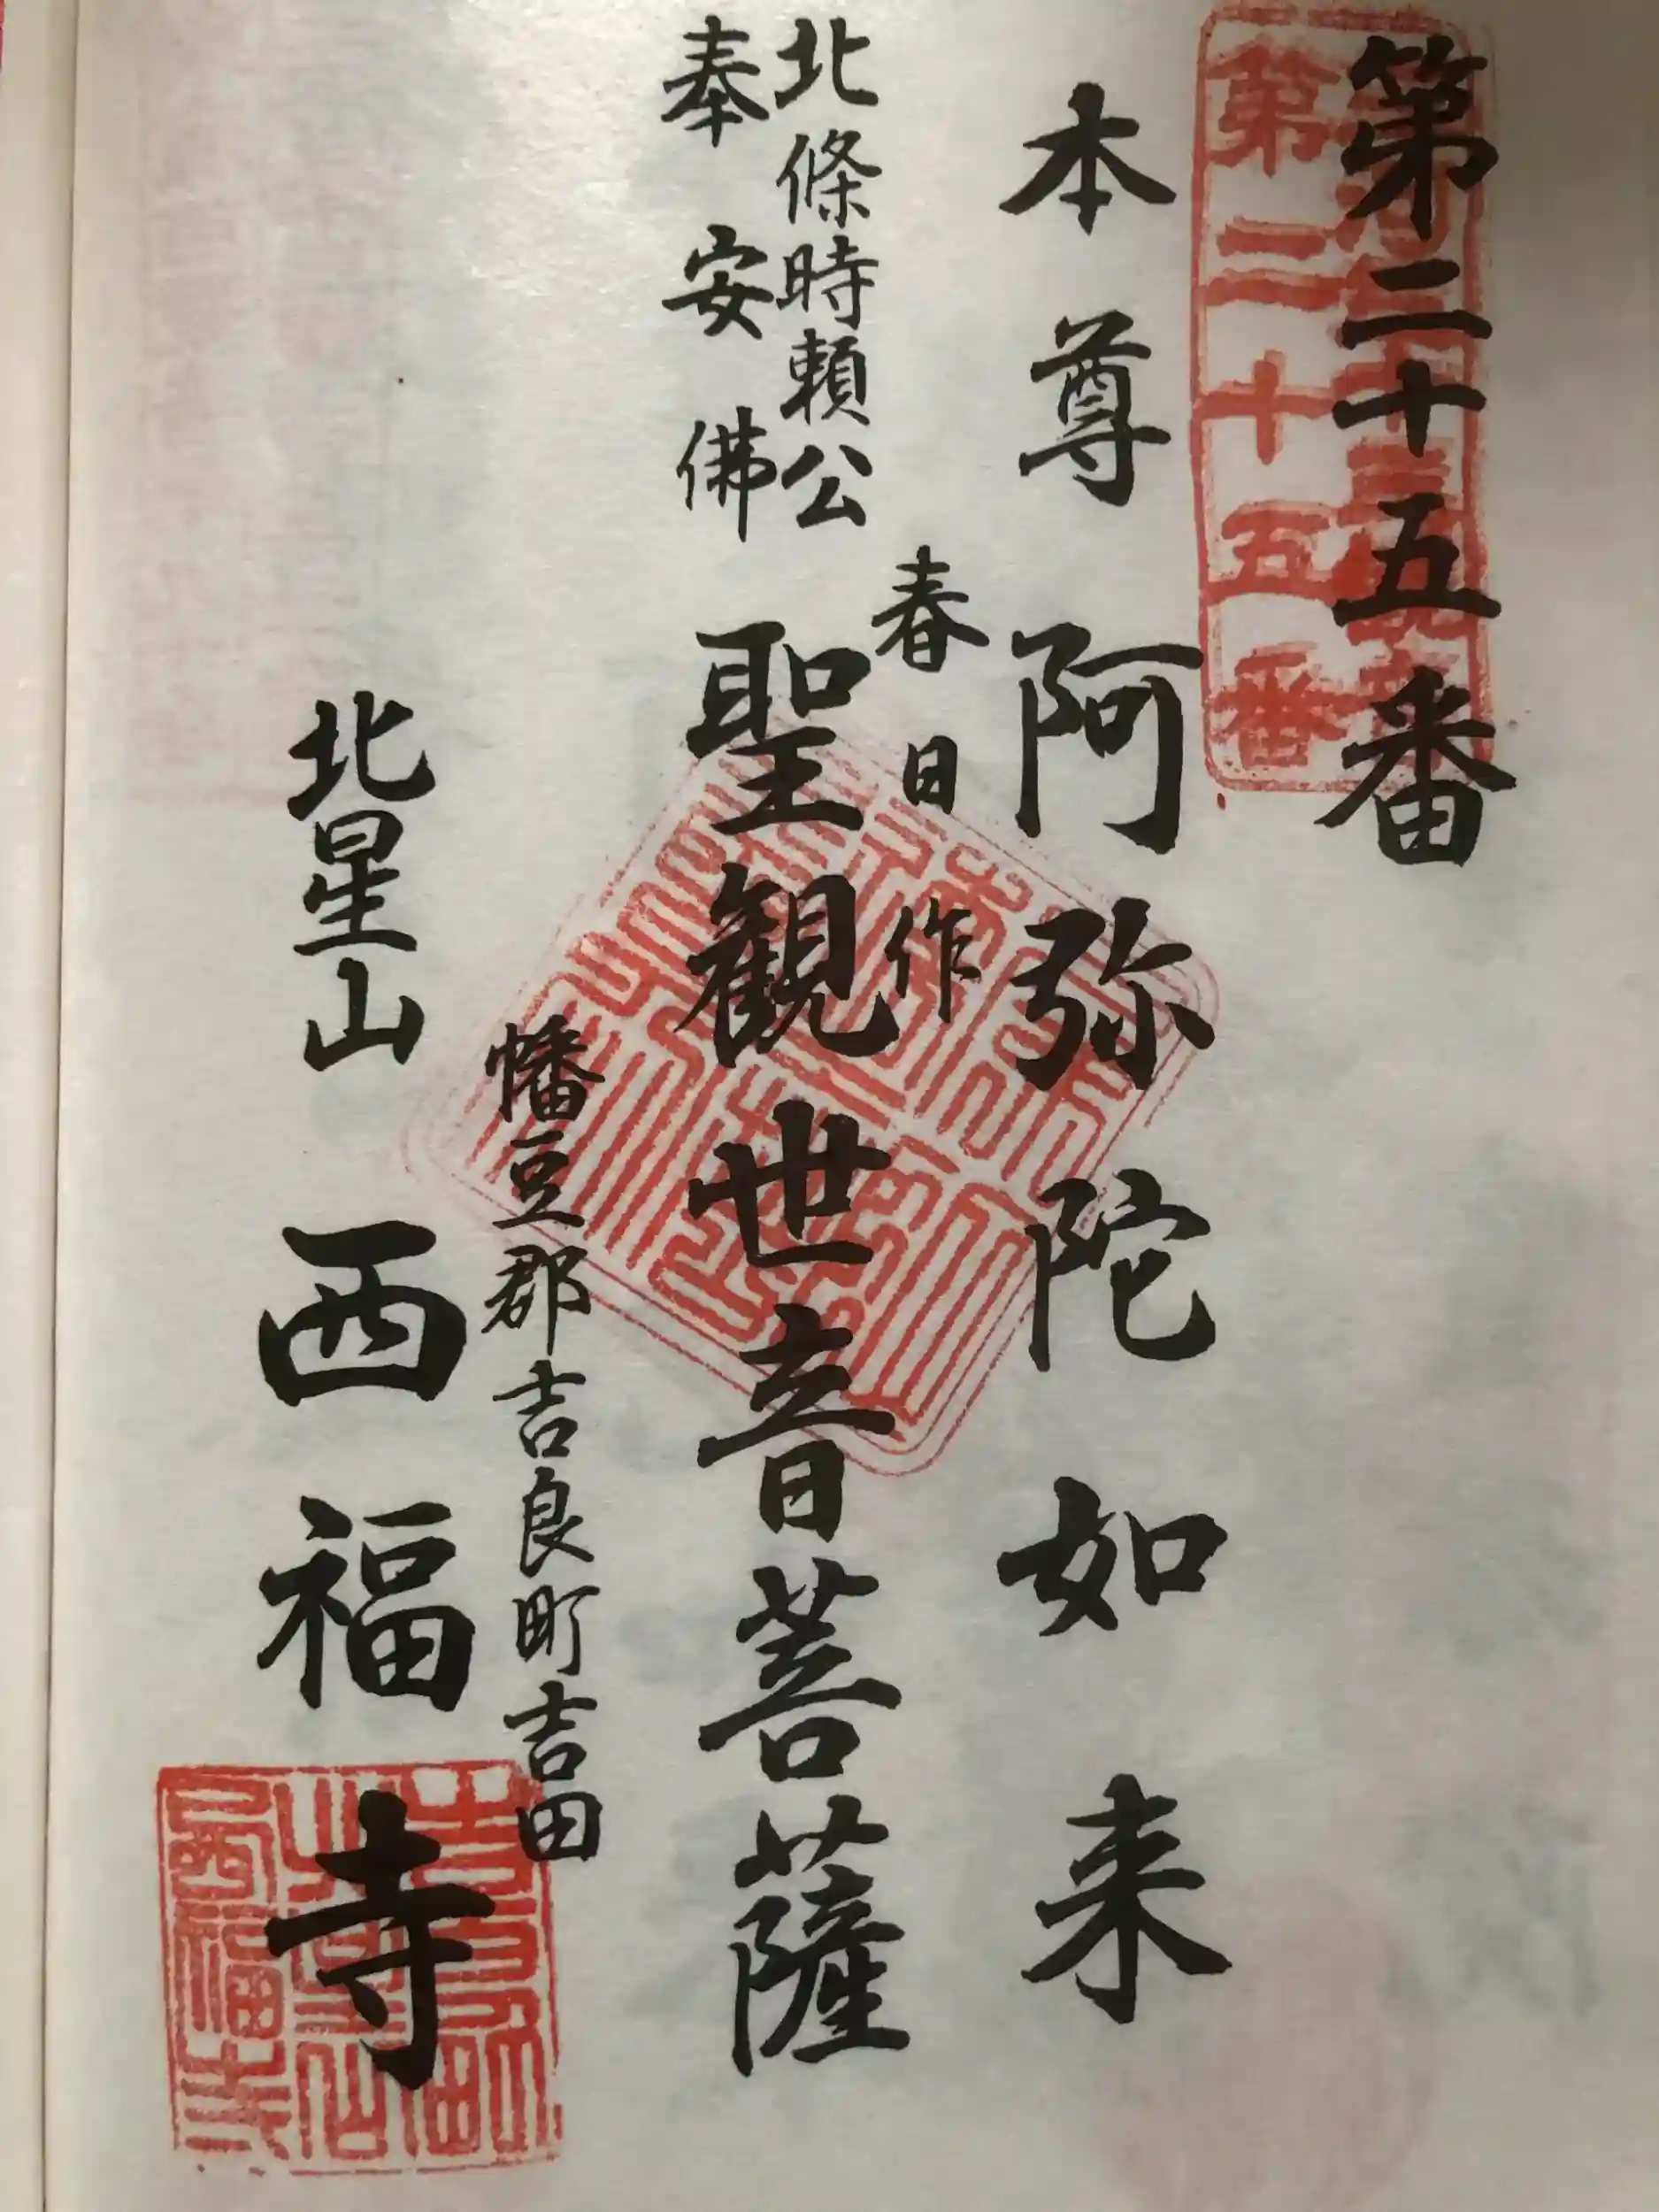 第二十五番
第二十五番
本尊阿弥陀如来
春日作
北條時頼公
奉安佛
聖観世音菩薩
幡豆郡吉良町吉田
北星山西福寺